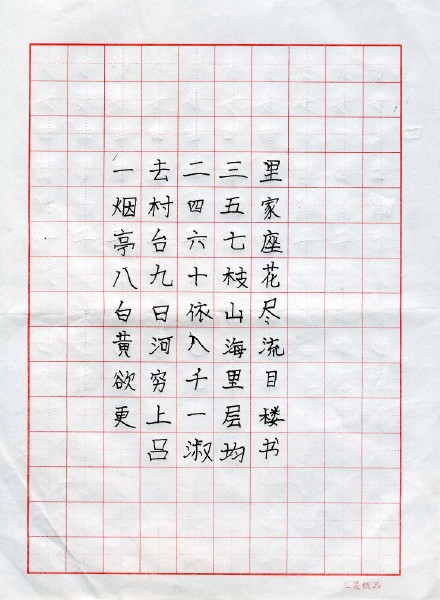 一去二三里
烟村四五家
亭台六七座
八九十枝花
白日依山尽
黄河入海流
欲穷千里目
更上一层楼
吕淑均书
三吴纸品